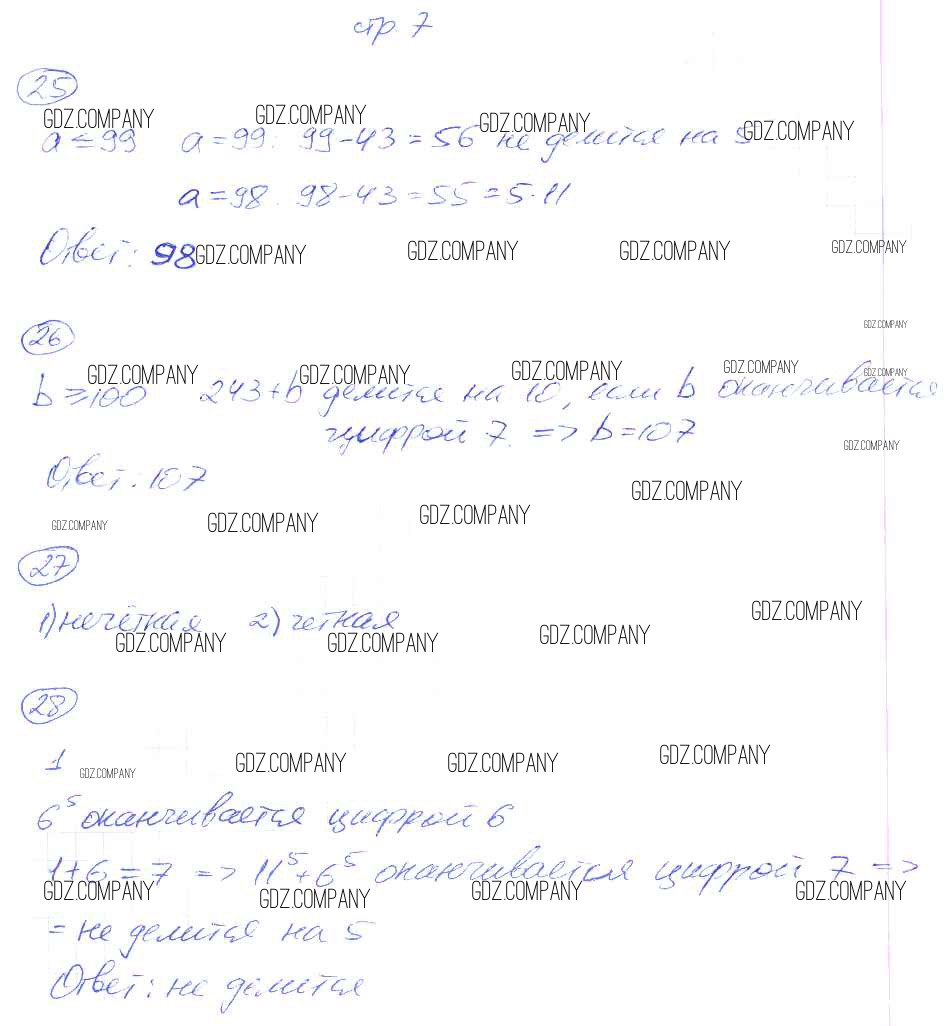 стр. 7
25
GDZ.COMPANY GDZ.COMPANY GDZ.COMPANY GDZ.COMPANY
a ≤ 99 a = 99: 99 - 43 = 56 не делится на 5
a = 98. 98 - 43 = 55 = 5·11
Ответ: 98
GDZ.COMPANY GDZ.COMPANY GDZ.COMPANY GDZ.COMPANY
GDZ.COMPANY
26
GDZ.COMPANY GDZ.COMPANY GDZ.COMPANY GDZ.COMPANY GDZ.COMPANY
b ≥ 100 243 + b делится на 10, если b оканчивается
цифрой 7. => b = 107
GDZ.COMPANY
Ответ: 107
GDZ.COMPANY
GDZ.COMPANY GDZ.COMPANY GDZ.COMPANY
27
1) нечётная 2) четная
GDZ.COMPANY
GDZ.COMPANY GDZ.COMPANY GDZ.COMPANY
28
1
GDZ.COMPANY GDZ.COMPANY GDZ.COMPANY GDZ.COMPANY
6⁵ оканчивается цифрой 6
1 + 6 = 7 => 11⁵ + 6⁵ оканчивается цифрой 7 =>
GDZ.COMPANY GDZ.COMPANY GDZ.COMPANY GDZ.COMPANY
= не делится на 5
Ответ: не делится